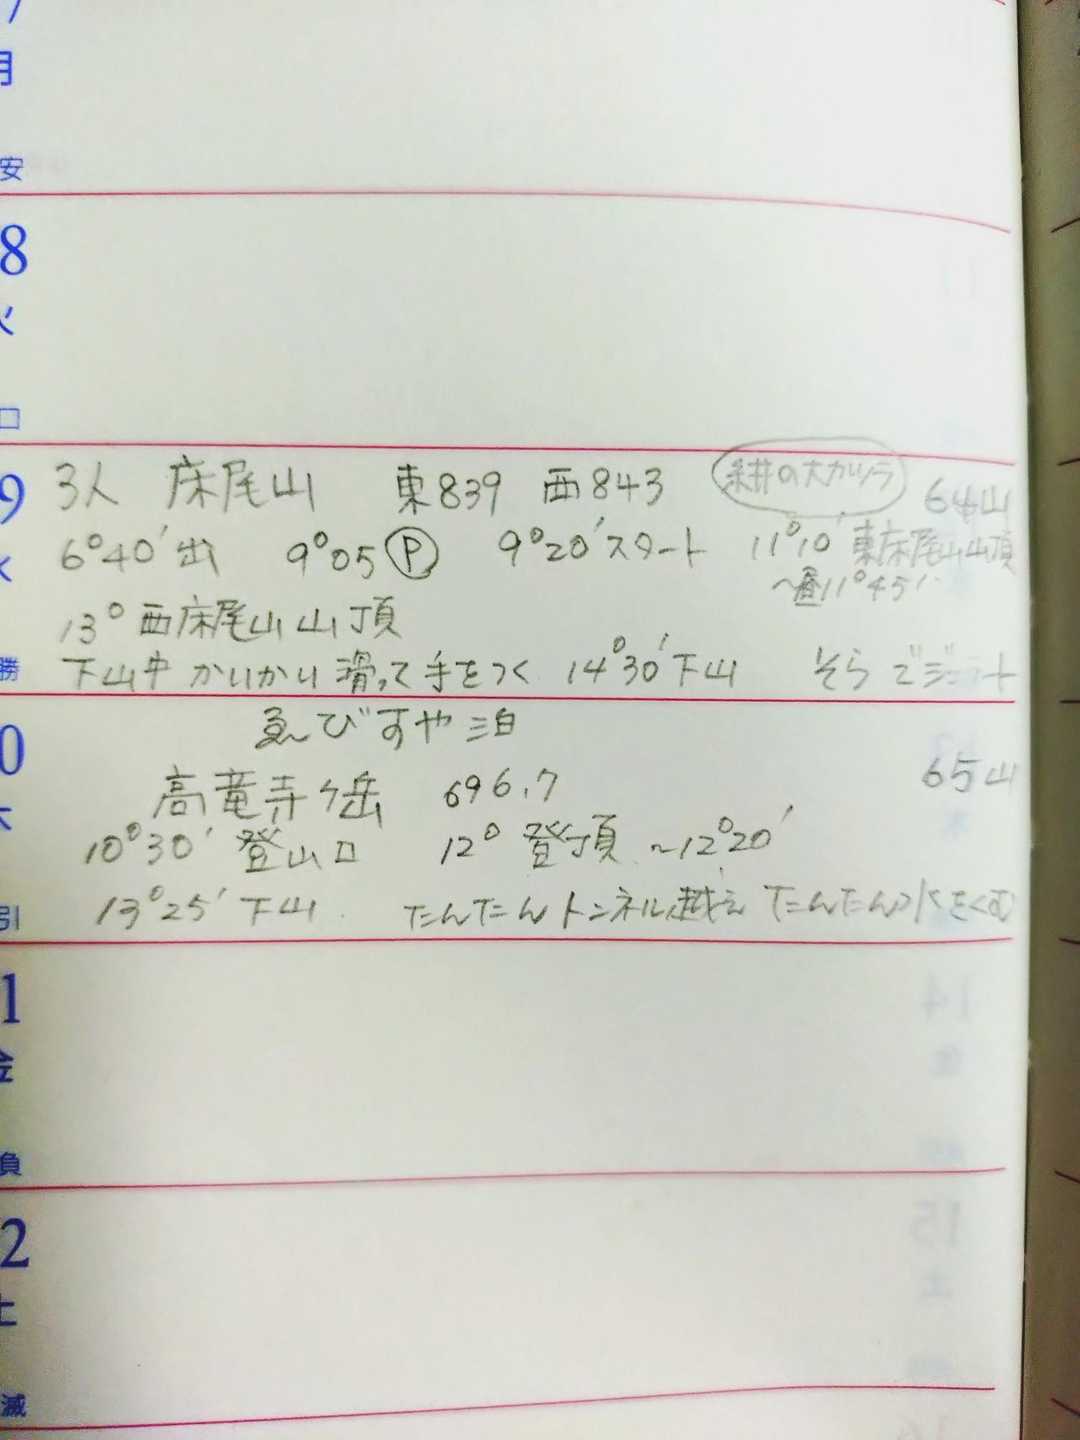 7
月
安
8
火
口
9
水
勝
3人 床尾山 東839 西843 糸井の大カツラ 64山
6°40′出 9°05 P 9°20′スタート 11°10′東床尾山山頂
~昼11°45′
13°西床尾山山頂
下山中 かりかり滑って手をつく 14°30′下山 そらでジェラート
0
木
引
ゑびすや泊
高竜寺ヶ岳 696.7 65山
10°30′登山口 12°登頂~12°20′
13°25′下山 たんたんトンネル越え たんたん水をくむ
1
金
負
2
土
滅